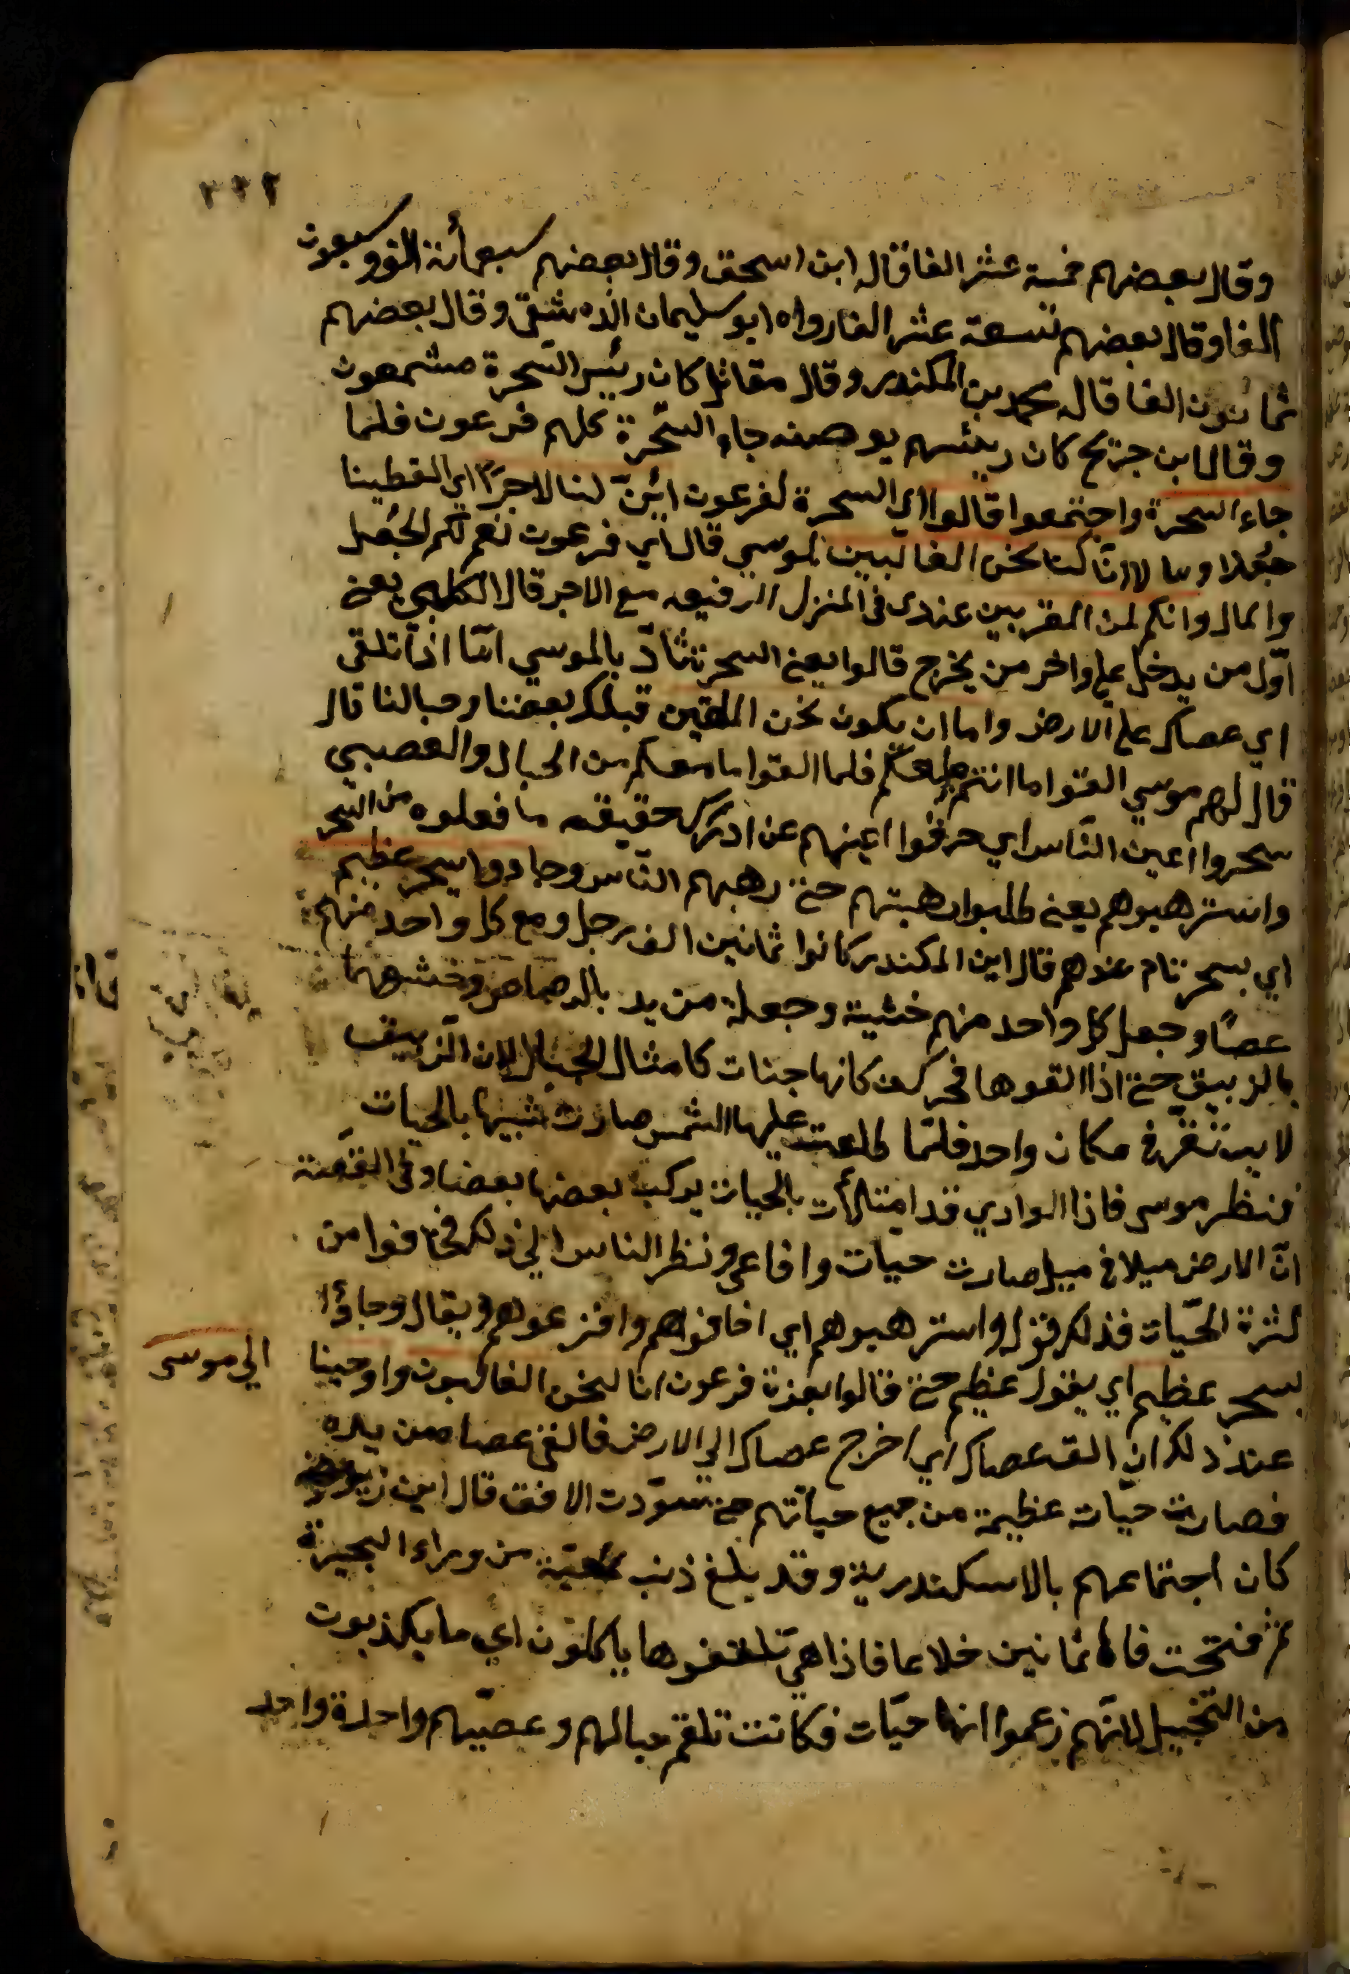 ٣٣٢
وقال بعضهم خمسة عشر الفا قاله ابن اسحق وقال بعضهم سبعمأنة الف وسبعون
الفا وقال بعضهم تسعة عشر الفا رواه ابو سليمان الدمشقي وقال بعضهم
ثمانون الفا قاله محمد بن المكندر وقال مقاتل كان رئيس السّحرة مشمعون
وقال ابن جريح كان رئيسهم يوحنه جاء السّحرة كلهم فرعون فلما
جاء السحرة واجتمعوا قالوا اي السحرة لفرعون ائنّ لنا لاجرًا اي لتعطينا
جُعلا ومالا ان كنا نحن الغالبين لموسي قال اي فرعون نعم لكم الجُعل
والمال وانكم لمن المقربين عندى فى المنزل الرفيعه مع الاجر قال الكلبي يعنى
اوّل من يدخل علي واخر من يخرج قالوا يعنى السحرة يا موسي امّا ان تلقى
اي عصاك على الارض واما ان نكون نحن الملقين قبلك بعصنا وحبالنا قال
قال لهم موسي القوا ما انتم فلما القوا ما معكم من الحبال والعصيي
سحروا اعين النّاس اي حرفوا اعينهم عن ادرك حقيقه ما فعلوه من السّحر
واسترهبوهم يعنى طلبوا رهبتهم حتى رهبهم النّاس وجاءوا بسحر عظيم
اي بسحر تام عندهم قال ابن المكندر كانوا ثمانين الف رجل ومع كل واحد منهم
عصًا وجعل كل واحد منهم خشية وجعله من يد بالرصاص وخشوهما
بالزيبق حتى اذا القوها فحركت كانها جنات كامثال الجبال لان الزيبق
لا يستقر فى مكان واحد فلمّا طلعت عليها الشمس صارت شبيها بالحيات
فنظر موسى فاذا الوادي قد امتلأت بالحيات يركب بعضها بعضا وفى القصّة
انّ الارض ميلا فى ميل صارت حيات وافاعى ونظر الناس الي ذلك فخافوا من
كثرة الحيّات فذلك قوله واسترهبوهم اي اخافوهم وافزعوهم ويقال وجاؤا
بسحر عظيم اي بقول عظيم حتى قالوا بعزة فرعون انا لنحن الغالبون واوحينا
الي موسى
عند ذلك ان الق عصاك اي اخرج عصاك الي الارض فالقى عصاه من يده
فصارت حيّات عظيمة من جميع حياتهم حتى سوّدت الافق قال ابن زيد
كان اجتماعهم بالاسكندرية وقد بلغ ذنب من وراء البحيرة
ثم فتحت فاها ثمانين ذراعا فاذا هى تلقفوها ياكلون اي ما يكذبون
من التخييل لانّهم زعموا انها حيّات فكانت تلقم حبالهم وعصيّهم واحدة واحد